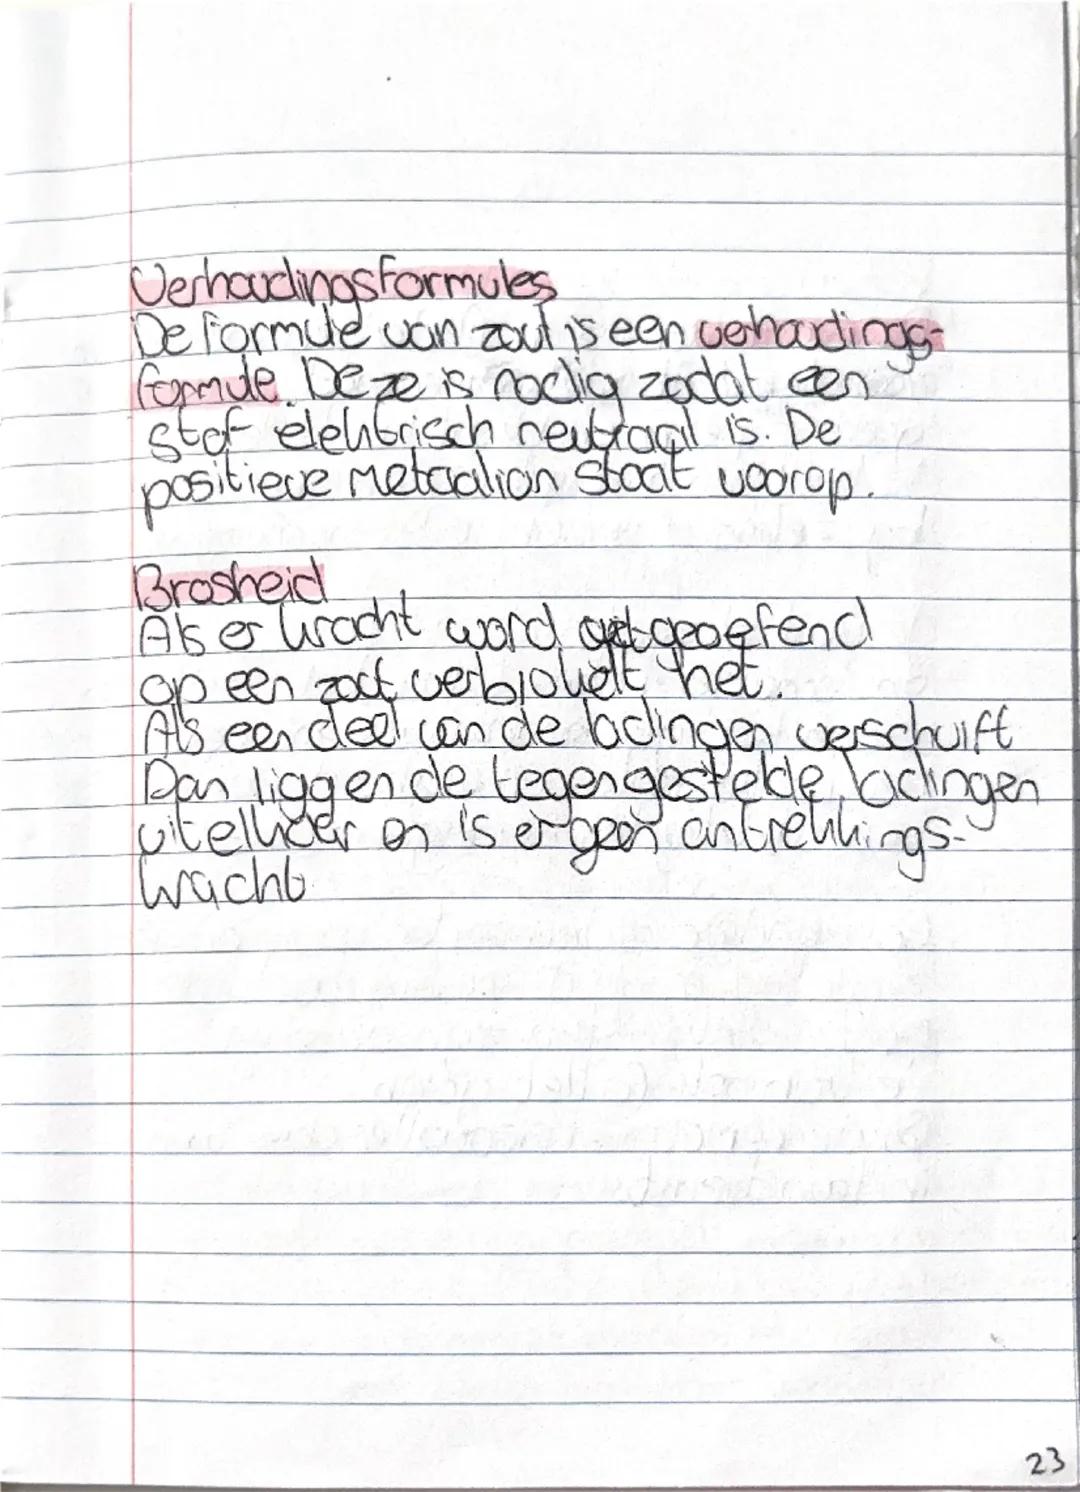 Verhoudingsformules
De formule van zout is een verhoudings-
formule. Deze is nodig zodat een
stof elektrisch neutraal is. De
positieve metaalion staat voorop.
Brosheid
Als er kracht word uitgeoefend
op een zout verbrokelt het.
Als een deel van de ladingen verschuift
Dan liggen de tegengestelde ladingen
uitelkaer en is er geen antrekkings-
kracht
23